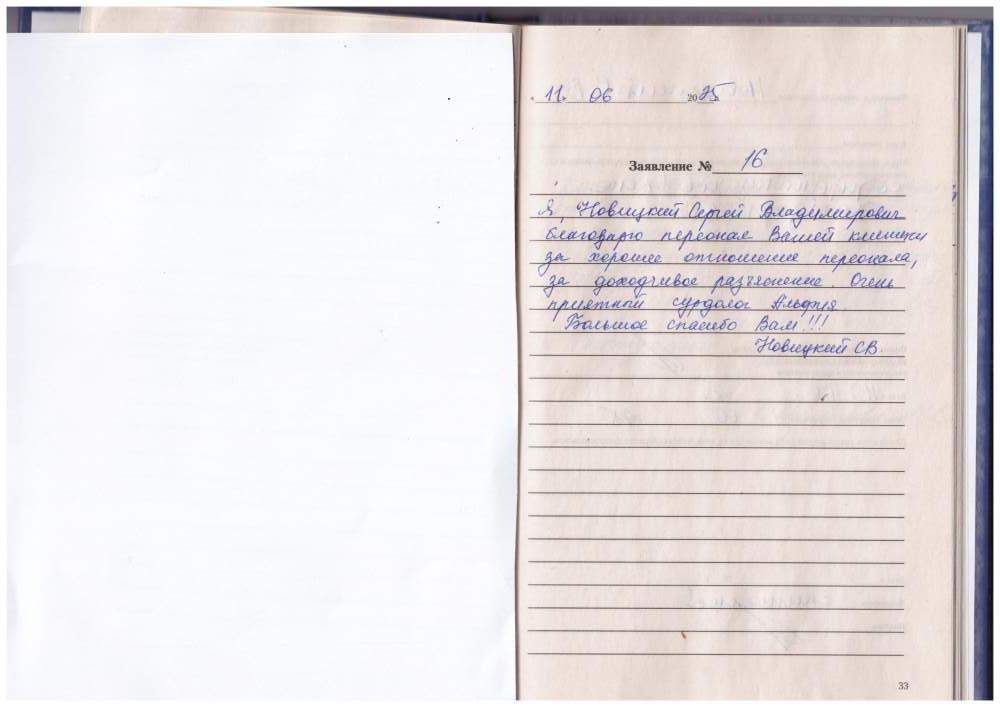 "11" 06 2025 г.
Заявление № 16
Я, Новицкий Сергей Владимирович
благодарю персонал Вашей клиники
за хорошее отношение персонала,
за доходчивое разъяснение. Очень
приятной сурдолог Альфия.
Большое спасибо Вам!!!
Новицкий СВ
33